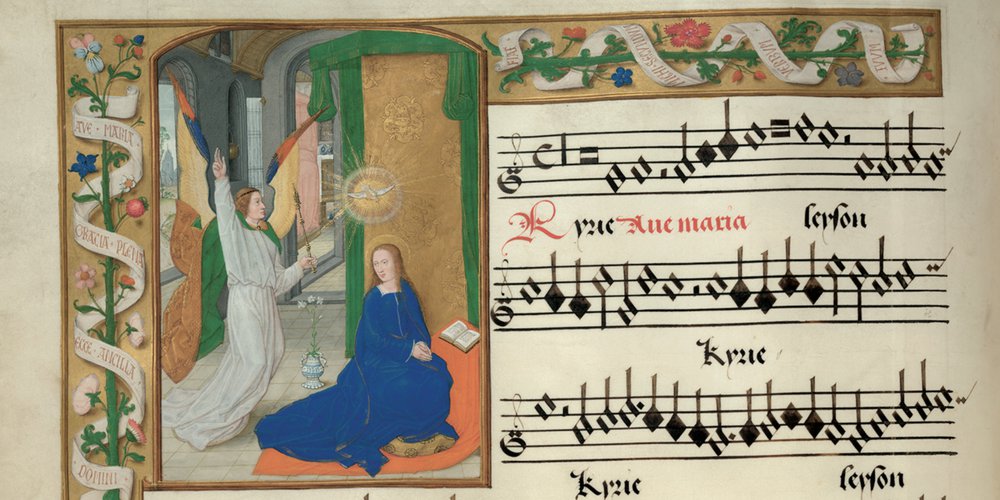 AVE · MARIA
GRACIA · PLENA
ECCE · ANCILLA
DOMINI
VERBUM TUUM
Kyrie Ave maria leyson
Kyrie
Kyrie leyson